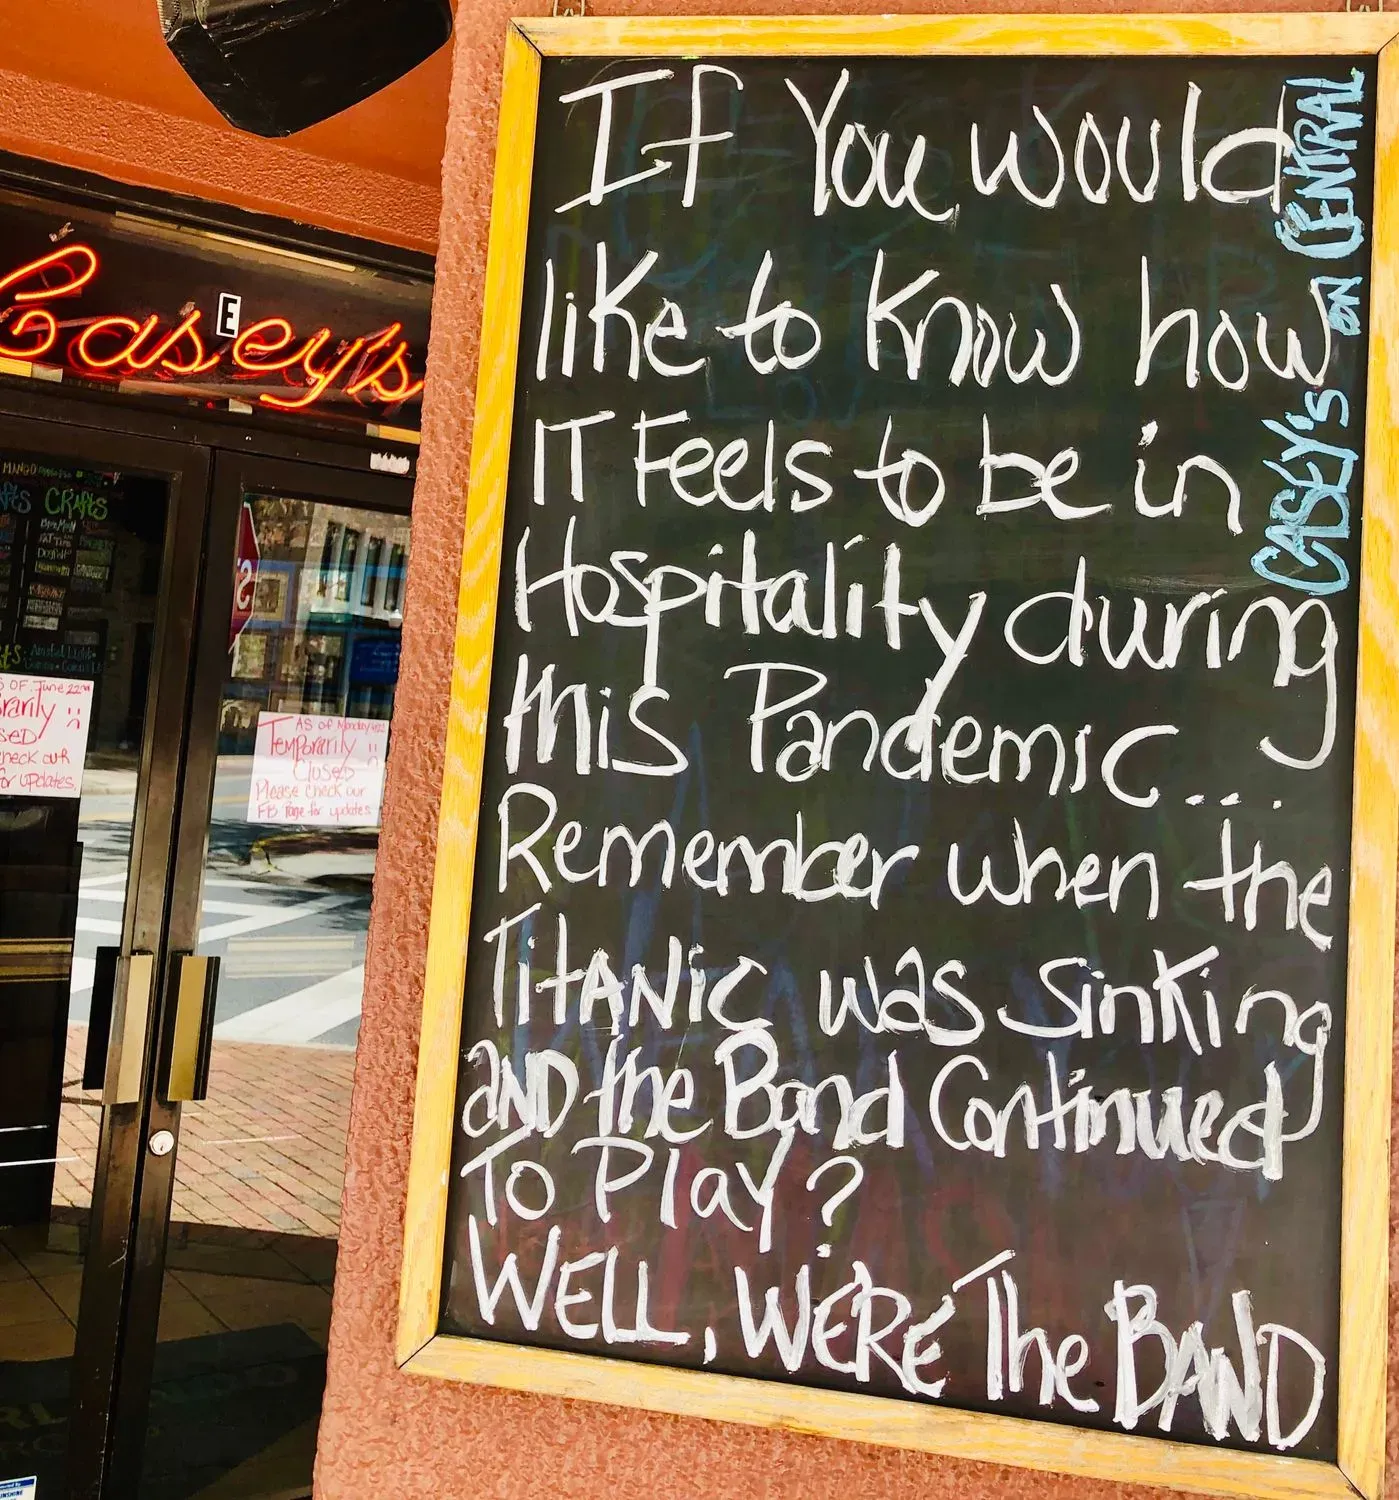 If You would
like to know how
IT Feels to be in
Hospitality during
this Pandemic...
Remember when the
TitANic was sinking
aND the Band Continued
To Play?
WELL, WE'RE The BAND
CASEY's on CENTRAL
Casey's
E
MANGO
CRAFTS
S OF June 22nd
rarily
SED
check out
for updates.
AS of Monday
Temporarily
Closed
Please check our
FB Page for updates